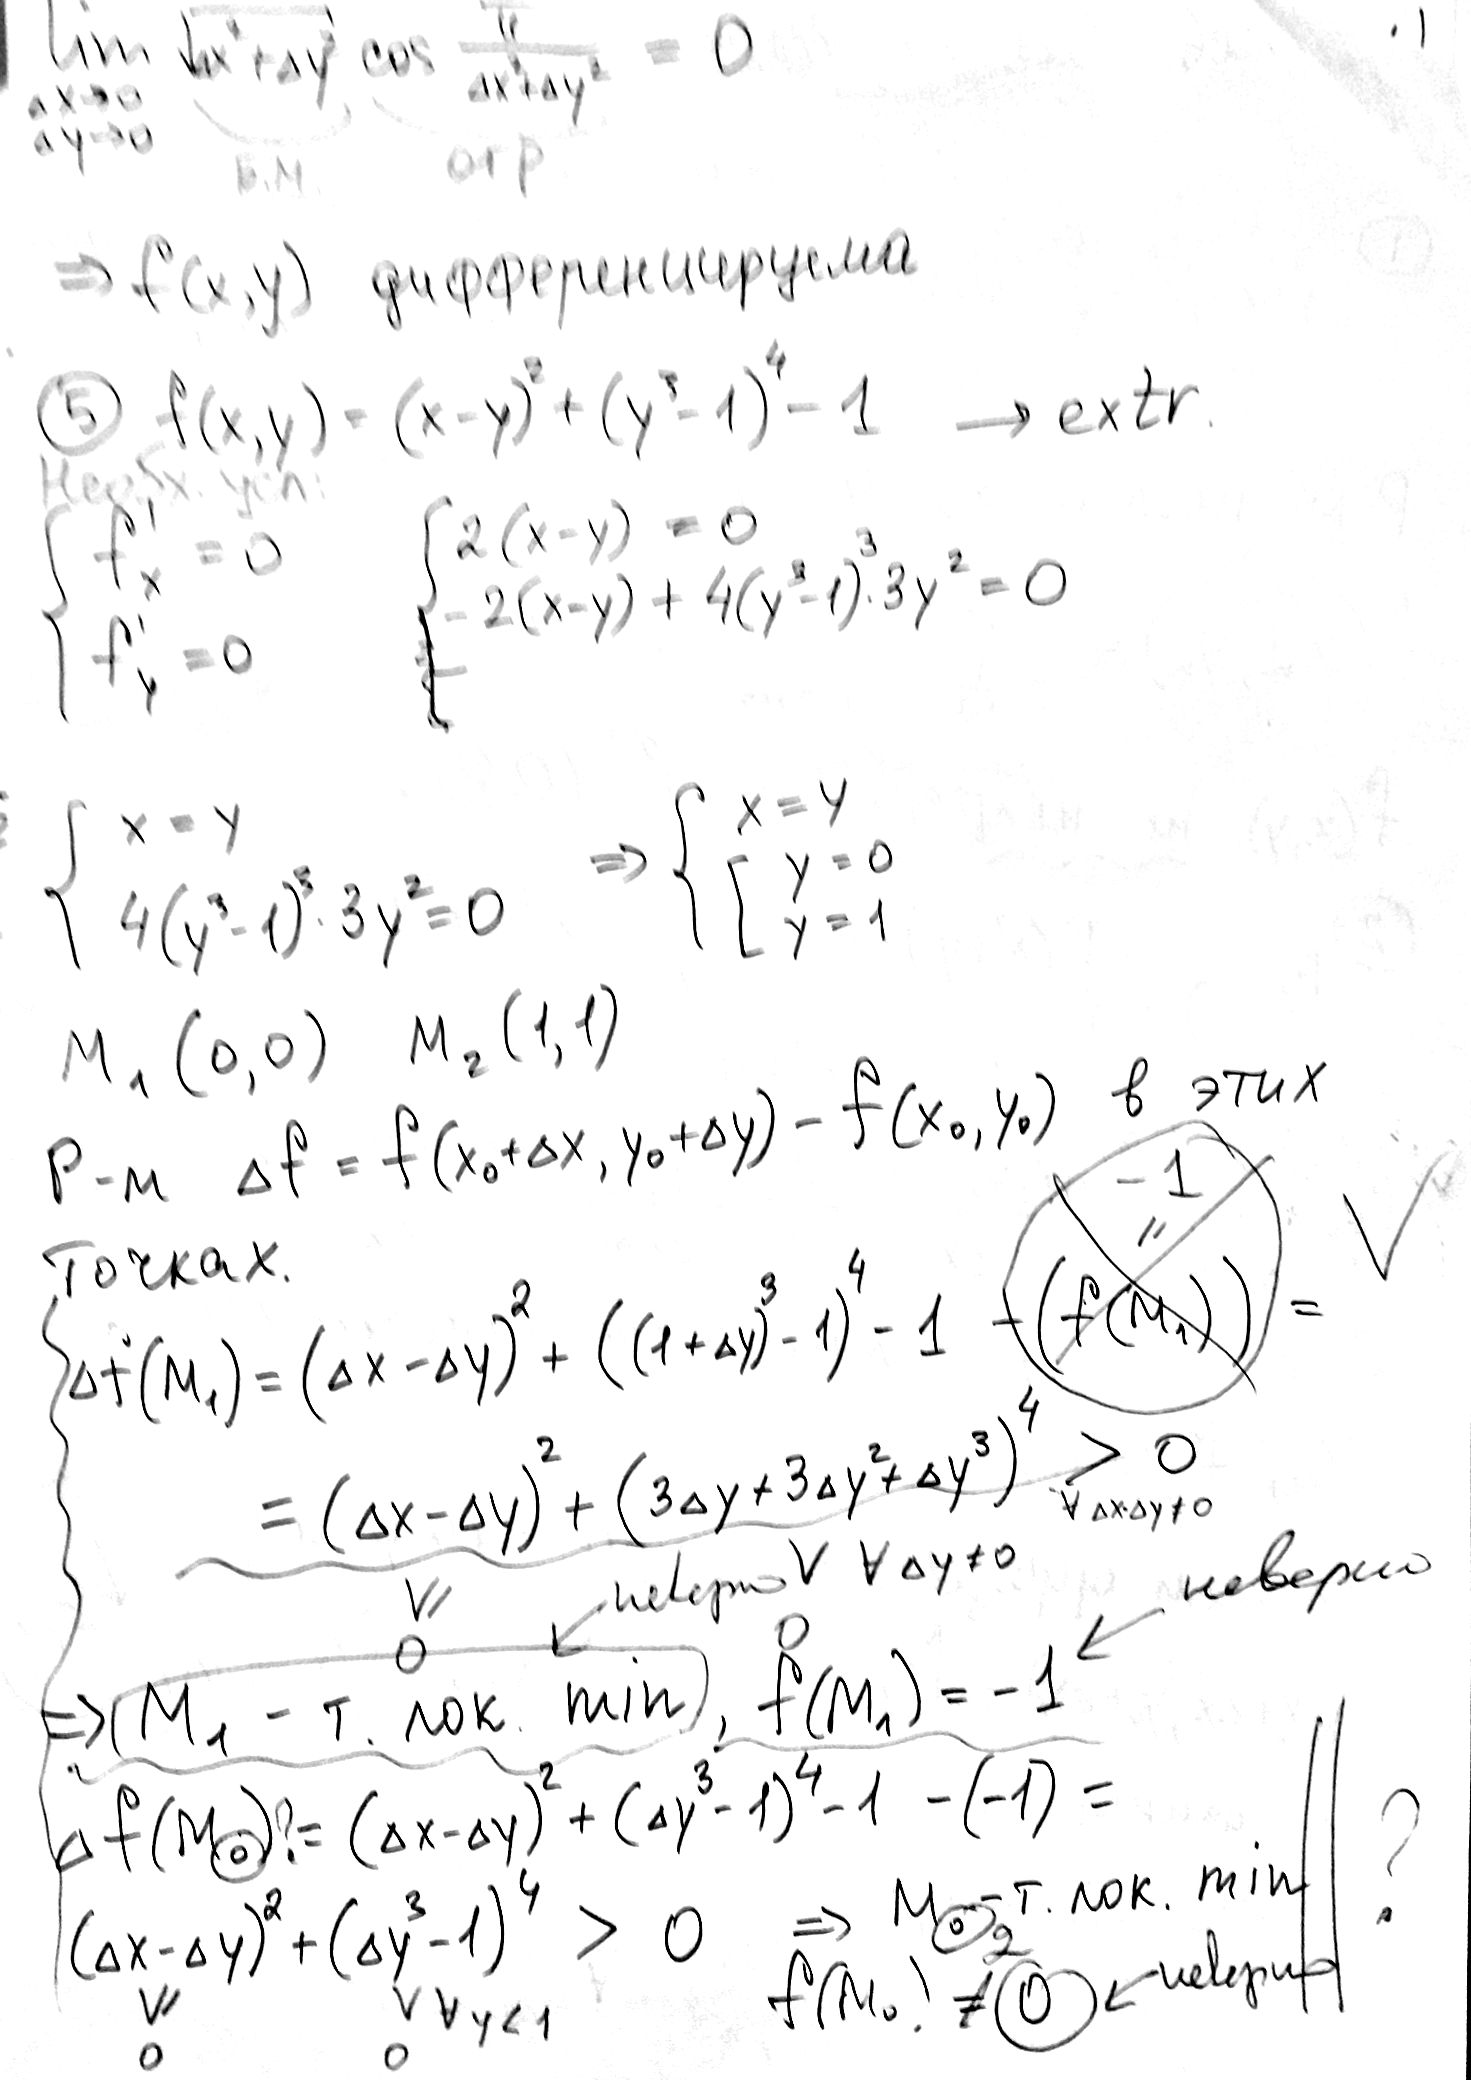 lim √(Δx²+Δy²) cos π/(Δx²+Δy²) = 0
Δx→0
Δy→0
Б.М. огр
⇒ f(x,y) дифференцируема
⑤ f(x,y) = (x-y)² + (y³-1)⁴ - 1 → extr.
Необх. усл:
{ f'x = 0 { 2(x-y) = 0
f'y = 0 -2(x-y) + 4(y³-1)³·3y² = 0
{ x = y ⇒ { x = y
4(y³-1)³·3y² = 0 [ y = 0
y = 1
M₁(0,0) M₂(1,1)
Р-м Δf = f(x₀+Δx, y₀+Δy) - f(x₀,y₀) в этих
точках.
-1
"
Δf(M₁) = (Δx-Δy)² + ((1+Δy)³-1)⁴ - 1 -(f(M₁)) =
= (Δx-Δy)² + (3Δy+3Δy²+Δy³)⁴ > 0
∀ Δx·Δy≠0
неверно ∨ ∀ Δy≠0 неверно
∨// 0
0
⇒ M₁ - т. лок. min, f(M₁) = -1
Δf(M₀)?= (Δx-Δy)² + (Δy³-1)⁴ - 1 - (-1) =
(Δx-Δy)² + (Δy³-1)⁴ > 0 ⇒ M₀₂ - т. лок. min ?
∨// ∨ ∀y<1 f(M₀! ≠ 0 ← неверно
0 0